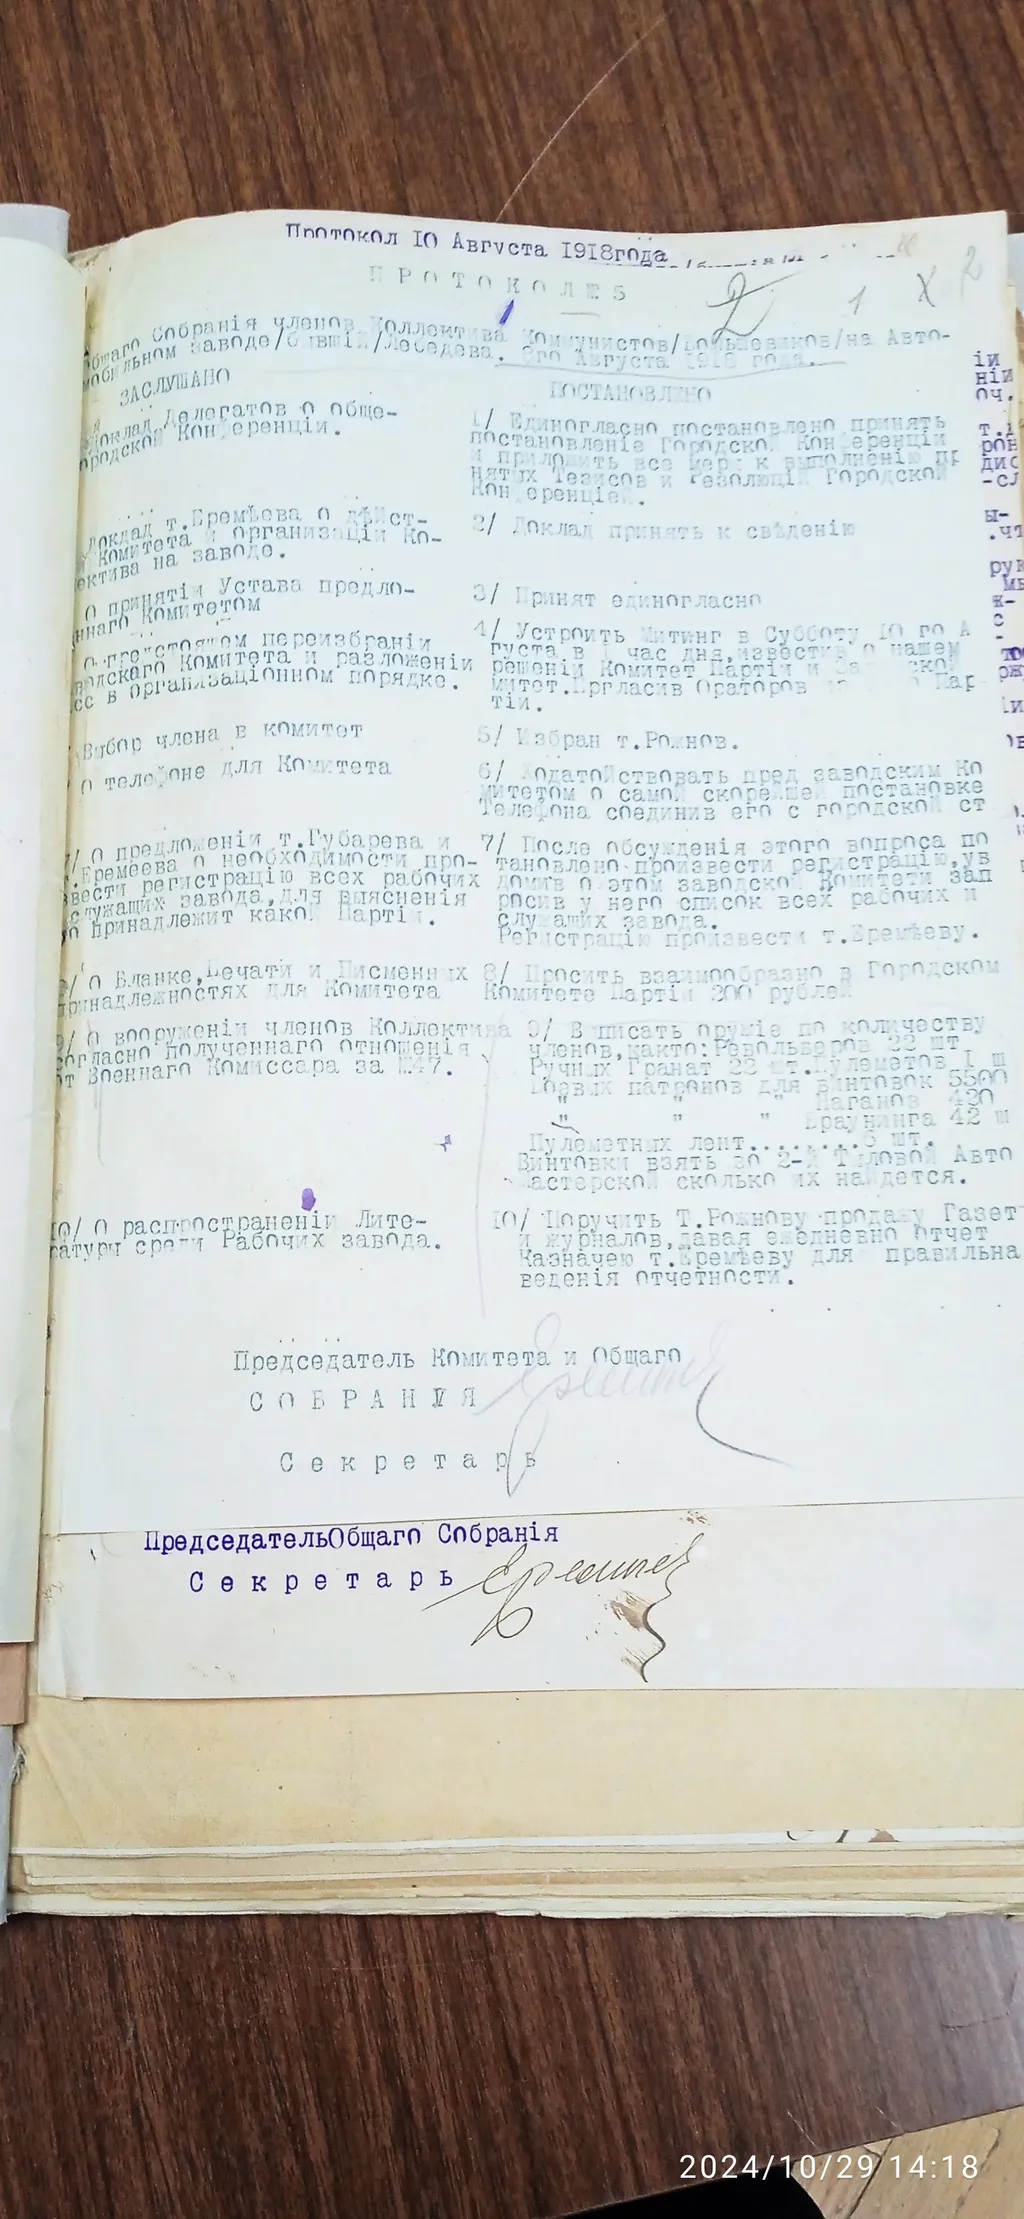 Протокол 10 Августа 1918года
П Р О Т О К О Л № 5
2 1 X 2
Общаго Собранія членов Коллектива Коммунистов/Большевиков/на Авто-
мобильном заводе/бывшій/Лебедева. 8го Августа 1918 года.
ЗАСЛУШАНО
ПОСТАНОВЛЕНО
Доклад Делегатов о обще-
городской Конференціи.
1/ Единогласно постановлено принять
постановленіе Городской Конференціи
и приложить все меры к выполненію пр
нятых Тезисов и Резолюцій Городской
Конференціей.
Доклад т.Еремѣева о дѣйст-
Комитета и организаціи Ко-
ектива на заводе.
2/ Доклад принять к свѣденію
О принятіи Устава предло-
ннаго Комитетом
3/ Принят единогласно
О предстоящем переизбраніи
водскаго Комитета и разложеніи
сс в Организаціонном порядке.
4/ Устроить Митинг в Субботу 10 го А
густа в 1 час дня,известив о нашем
решеніи Комитет Партіи и
митет.Пргласив Ораторов Пар
тіи.
Выбор члена в комитет
5/ Избран т.Рожнов.
О телефоне для Комитета
6/ Ходатойствовать пред заводским Ко
митетом о самой скорейшей постановке
Телефона соединив его с городской ст
7/ О предложеніи т.Губарева и
т.Еремеева о необходимости про-
звести регистрацію всех рабочих
служащих завода,для выясненія
то принадлежит какой Партіи.
7/ После обсужденія этого вопроса по
тановлено произвести регистрацію,ув
домив о этом заводской Комитети зап
росив у него список всех рабочих и
служащих завода.
Регистрацію произвести т.Еремѣеву.
8/ О Бланке,Печати и Писменных
принадлежностях для Комитета
8/ Просить взаимообразно в Городском
Комитете Партіи 200 рублей
9/ О вооруженіи членов Коллектива
согласно полученнаго отношенія
от Военнаго Комиссара за №47.
9/ Выписать оружіе по количеству
членов,както:Револьверов 22 шт.
Ручных Гранат 22 шт.Пулеметов 1 ш
Боевых патронов для винтовок 5500
" " " Наганов 420
" " " Браунинга 42 ш
Пулеметных лент........5 шт.
Винтовки взять во 2-й Тыловой Авто
Мастерской сколько их найдется.
10/ О распространеніи Лите-
ратуры среди Рабочих завода.
10/ Поручить Т.Рожнову продажу Газет
и журналов,давая ежедневно отчет
Казначею т.Еремѣеву для правильна
веденія отчетности.
Председатель Комитета и Общаго
С О Б Р А Н И Я
С е к р е т а р ь
ПредседательОбщаго Собранія
С е к р е т а р ь
іи
ніи
оч.
рон
дис
-сл
ы-
.чт
рук
с